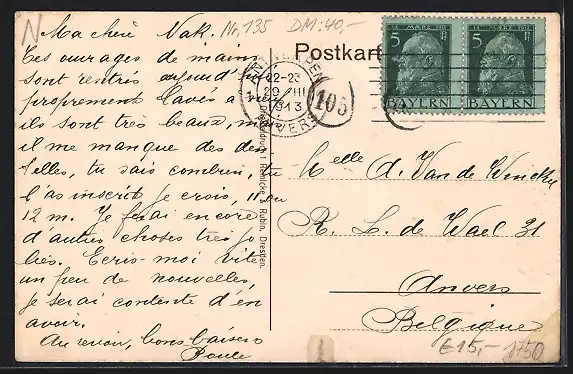 N
Nr. 135
DM: 40,-
Ma chère Nak.
Ces ouvrages de mains
sont rentrés aujourd'hui
proprement lavés
ils sont très beaux, mais
il me manque des den
telles, tu sais combien, tu
l'as inscrit je crois, 11 ou
12 m. Je ferai encore
d'autres choses très jo
lies. Ecris-moi vite
un peu de nouvelles,
je serai contente d'en
avoir.
Au revoir, bons baisers
Paule
Postkarte
ANTWERPEN
22-23
29 III
1913
ANVERS
105
5
BAYERN
5
BAYERN
Reinicke & Rubin, Dresden.
Melle A. Van de Wincke
R. L. de Wael 31
Anvers
Belgique
€15,-
1750